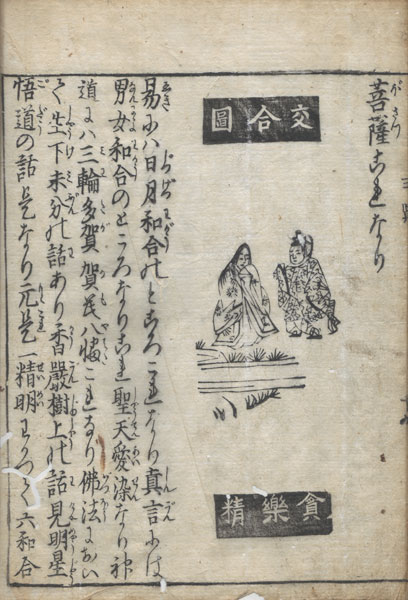 菩薩これなり
交合圖
貪樂精
易にハ日月和合のところこれなり真言にハ
男女和合のところなりこれ聖天愛染なり神
道にハ三輪多賀賀茂八幡これなり佛法におい
て生下未分の話あり香嚴樹上の話見明星
悟道の話是なり元是一精明わかつて六和合